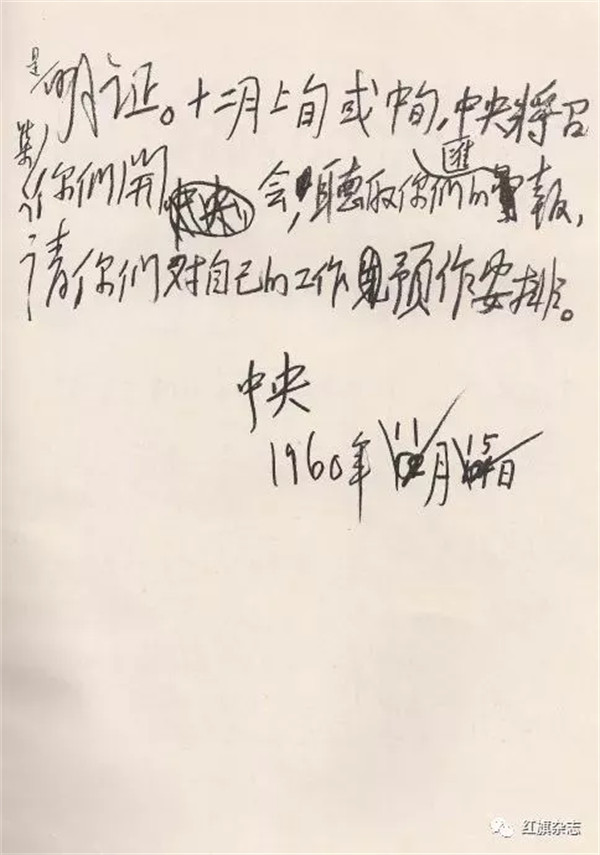 是明证。十二月上旬或中旬，中央將召
集你们開会，聽取你们的匯報，
请你们对自己的工作预作安排。
中央
1960年11月15日
红旗杂志